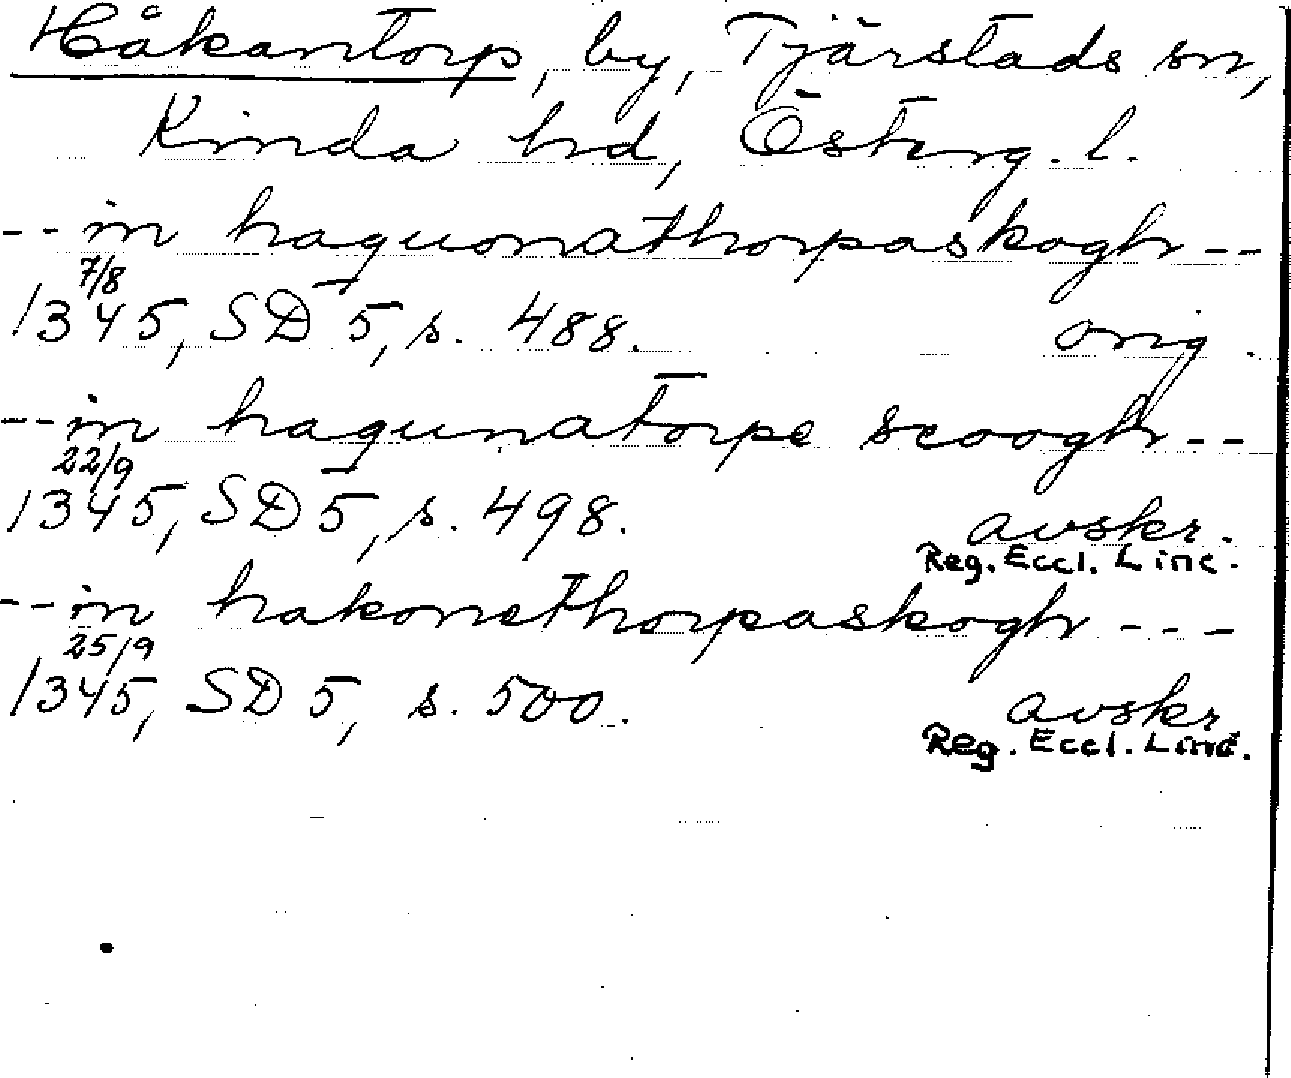 Håkantorp, by, Tjärstads sn,
Kinda hd, Österg. l.
-- in haquonathorpaskogh --
7/8
1345, SD 5, s. 488. orig.
-- in haqunatorpe scoogh --
22/9
1345, SD 5, s. 498. avskr.
Reg. Eccl. Linc.
-- in hakonethorpaskogh ---
25/9
1345, SD 5, s. 500. avskr.
Reg. Eccl. Linc.